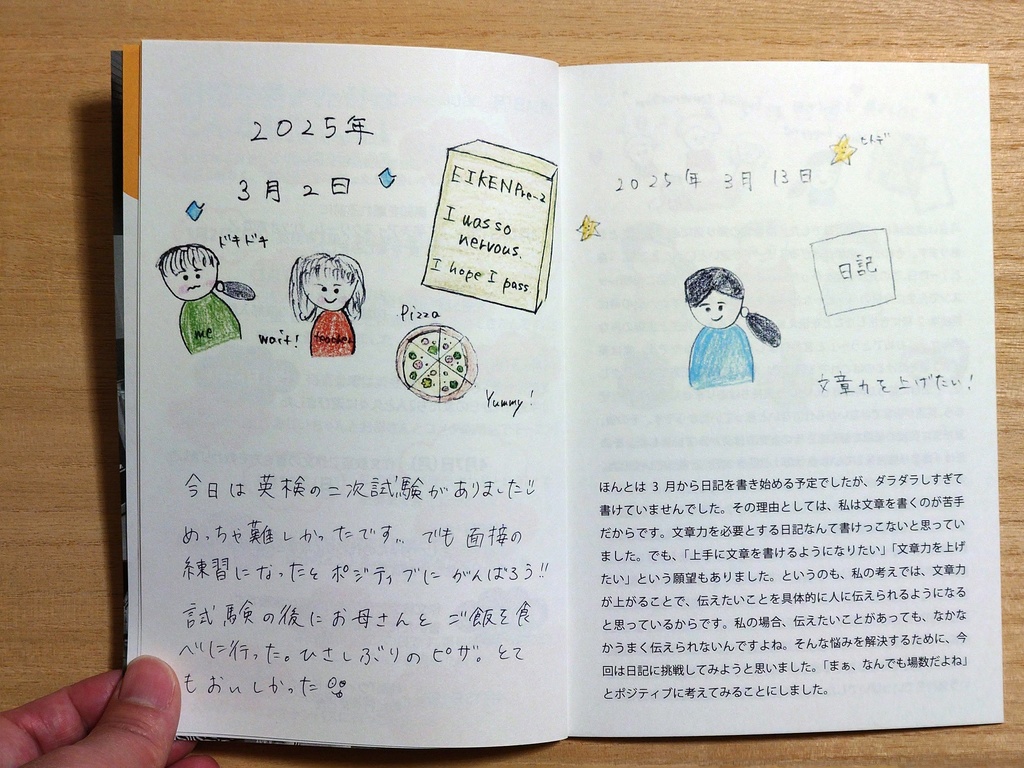 2025年
3月2日
ドキドキ
me
wait!
teacher
EIKEN Pre-2
I was so
nervous.
I hope I pass
Pizza
Yummy!
今日は英検の二次試験がありました!!
めっちゃ難しかったです... でも面接の
練習になったとポジティブにがんばろう!!
試験の後にお母さんとご飯を食
べに行った。ひさしぶりのピザ。とて
もおいしかった
2025年3月13日
日記
文章力を上げたい!
ほんとは 3 月から日記を書き始める予定でしたが、ダラダラしすぎて
書けていませんでした。その理由としては、私は文章を書くのが苦手
だからです。文章力を必要とする日記なんて書けっこないと思ってい
ました。でも、「上手に文章を書けるようになりたい」「文章力を上げ
たい」という願望もありました。というのも、私の考えでは、文章力
が上がることで、伝えたいことを具体的に人に伝えられるようになる
と思っているからです。私の場合、伝えたいことがあっても、なかな
かうまく伝えられないんですよね。そんな悩みを解決するために、今
回は日記に挑戦してみようと思いました。「まぁ、なんでも場数だよね」
とポジティブに考えてみることにしました。